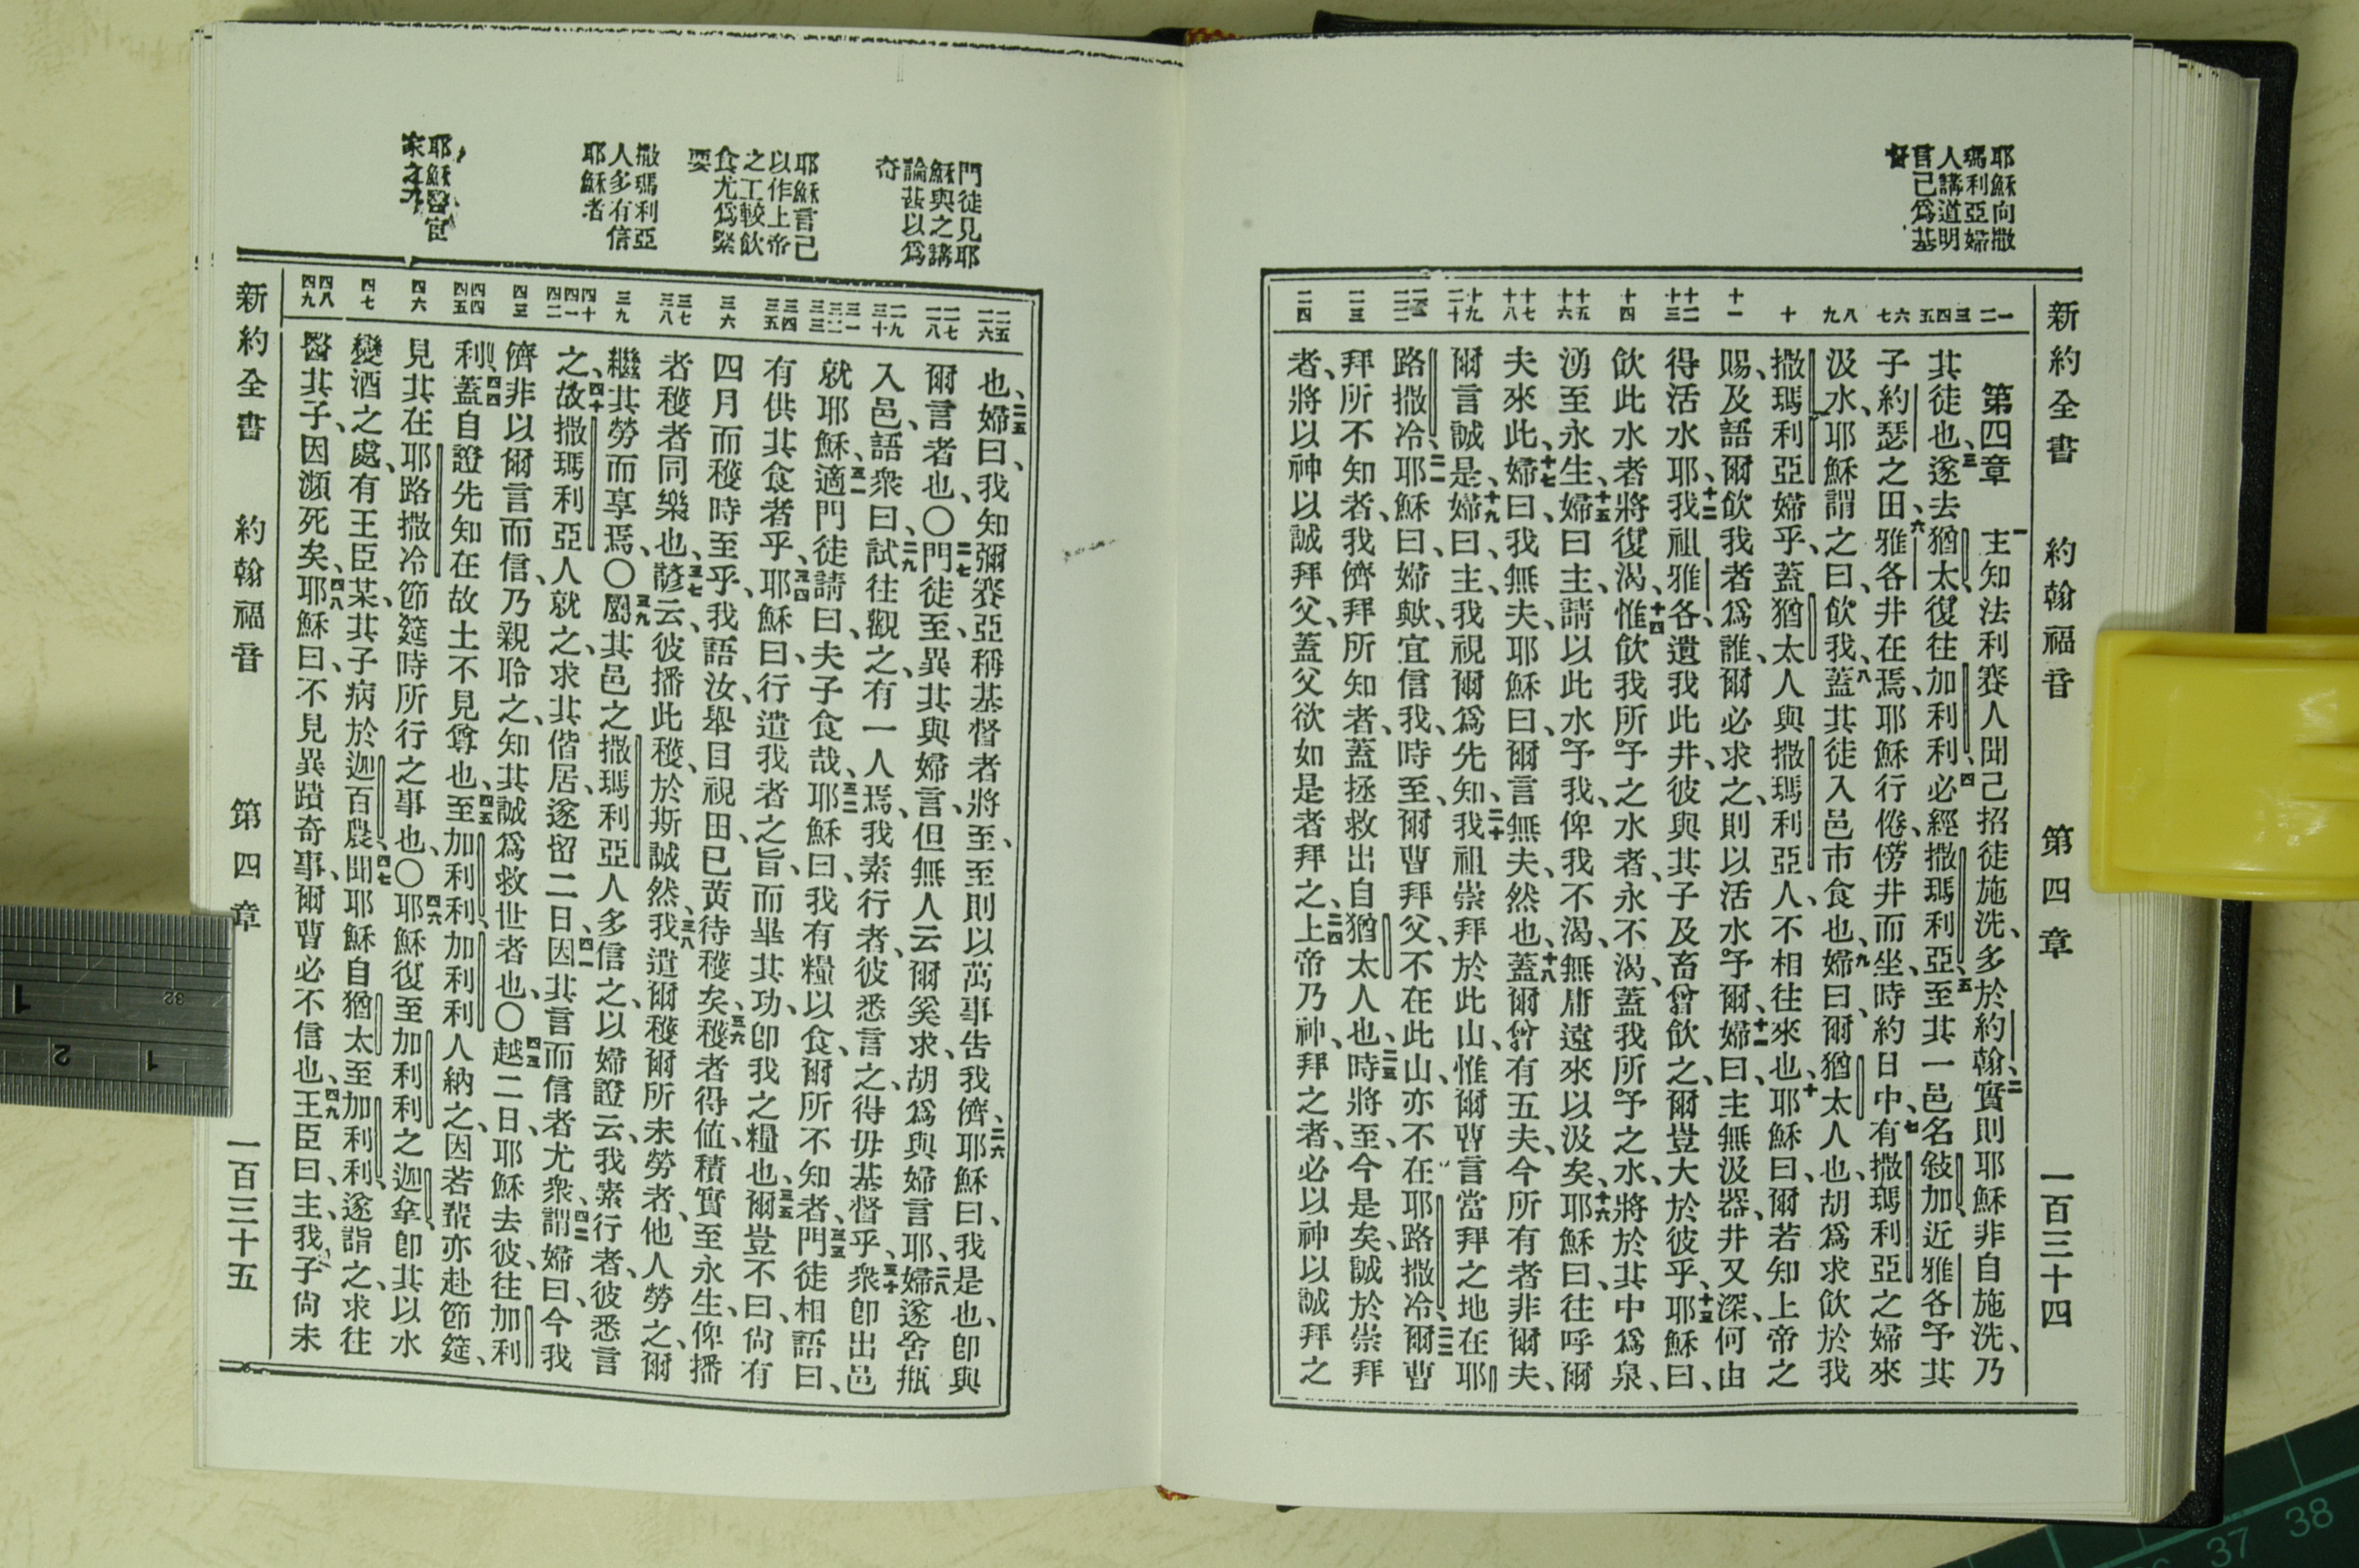 新約全書 約翰福音 第四章 一百三十四
耶穌向撒
瑪利亞婦
人講道明
言己爲基
督
一二
第四章 一主知法利賽人聞己招徒施洗、多於約翰、二實則耶穌非自施洗、乃
三四五
其徒也、三遂去猶太、復往加利利、四必經撒瑪利亞、五至其一邑名敍加、近雅各予其
六七
子約瑟之田、六雅各井在焉、耶穌行倦、傍井而坐、時約日中、七有撒瑪利亞之婦來
八九
汲水、耶穌謂之曰、飲我、八蓋其徒入邑市食也、九婦曰、爾猶太人也、胡爲求飲於我
十
撒瑪利亞婦乎、蓋猶太人與撒瑪利亞人、不相往來也、十耶穌曰、爾若知上帝之
十一
賜、及語爾飲我者爲誰、爾必求之、則以活水予爾、十一婦曰、主無汲器、井又深、何由
十二十三
得活水耶、十二我祖雅各、遺我此井、彼與其子及畜曾飲之、爾豈大於彼乎、十三耶穌曰、
十四
飲此水者將復渴、十四惟飲我所予之水者、永不渴、蓋我所予之水、將於其中爲泉、
十五十六
湧至永生、十五婦曰、主、請以此水予我、俾我不渴、無庸遠來以汲矣、十六耶穌曰、往呼爾
十七十八
夫來此、十七婦曰、我無夫、耶穌曰、爾言無夫、然也、十八蓋爾曾有五夫、今所有者非爾夫、
十九二十
爾言誠是、十九婦曰、主、我視爾爲先知、二十我祖崇拜於此山、惟爾曹言當拜之地在耶
二一二二
路撒冷、二一耶穌曰、婦歟、宜信我、時至、爾曹拜父、不在此山、亦不在耶路撒冷、二二爾曹
二三
拜所不知者、我儕拜所知者、蓋拯救出自猶太人也、二三時將至、今是矣、誠於崇拜
二四
者、將以神以誠拜父、蓋父欲如是者拜之、二四上帝乃神、拜之者、必以神以誠拜之
門徒見耶
穌與之講
論甚以爲
奇
耶穌言己
以作上帝
之工較飲
食尤爲緊
要
撒瑪利亞
人多有信
耶穌者
二五二六
也、二五婦曰、我知彌賽亞稱基督者將至、至則以萬事告我儕、二六耶穌曰、我是也、卽與
二七二八
爾言者也、〇二七門徒至、異其與婦言、但無人云爾奚求、胡爲與婦言耶、二八婦遂舍瓶
二九三十
入邑、語衆曰、二九試往觀之、有一人焉、我素行者、彼悉言之、得毋基督乎、三十衆卽出邑
三一三二三三
就耶穌、三一適門徒請曰、夫子食哉、三二耶穌曰、我有糧以食、爾所不知者、三三門徒相語曰、
三四三五
有供其食者乎、三四耶穌曰、行遣我者之旨、而畢其功、卽我之糧也、三五爾豈不曰、尙有
三六
四月而穫時至乎、我語汝、舉目視田、已黃待穫矣、三六穫者得値、積實至永生、俾播
三七三八
者穫者同樂也、三七諺云、彼播此穫、於斯誠然、三八我遣爾穫爾所未勞者、他人勞之、爾
三九
繼其勞而享焉、〇三九其邑之撒瑪利亞人多信之、以婦證云、我素行者、彼悉言
四十四一四二
之、四十故撒瑪利亞人就之、求其偕居、遂留二日、四一因其言而信者尤衆、四二謂婦曰、今我
四三
儕非以爾言而信、乃親聆之、知其誠爲救世者也、〇四三越二日、耶穌去彼、往加利
四四四五
利、四四蓋自證先知在故土不見尊也、四五至加利利、加利利人納之、因若輩亦赴節筵、
四六
見其在耶路撒冷節筵時所行之事也、〇四六耶穌復至加利利之迦拿、卽其以水
四七
變酒之處、有王臣某、其子病於迦百農、四七聞耶穌自猶太至加利利、遂詣之、求往
四八四九
醫其子、因瀕死矣、四八耶穌曰、不見異蹟奇事、爾曹必不信也、四九王臣曰、主、我子尙未
新約全書 約翰福音 第四章 一百三十五
1 2 1 32
37 38